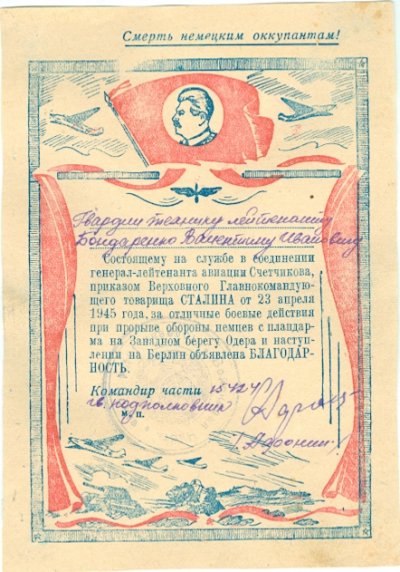 Смерть немецким оккупантам!
Гвардии технику лейтенанту
Бондаренко Валентину Ивановичу
Состоящему на службе в соединении
генерал-лейтенанта авиации Счетчикова,
приказом Верховного Главнокомандую-
щего товарища СТАЛИНА от 23 апреля
1945 года, за отличные боевые действия
при прорыве обороны немцев с плацдар-
ма на Западном берегу Одера и наступ-
лении на Берлин объявлена БЛАГОДАР-
НОСТЬ.
Командир части 15424
гв. подполковник
м. п.